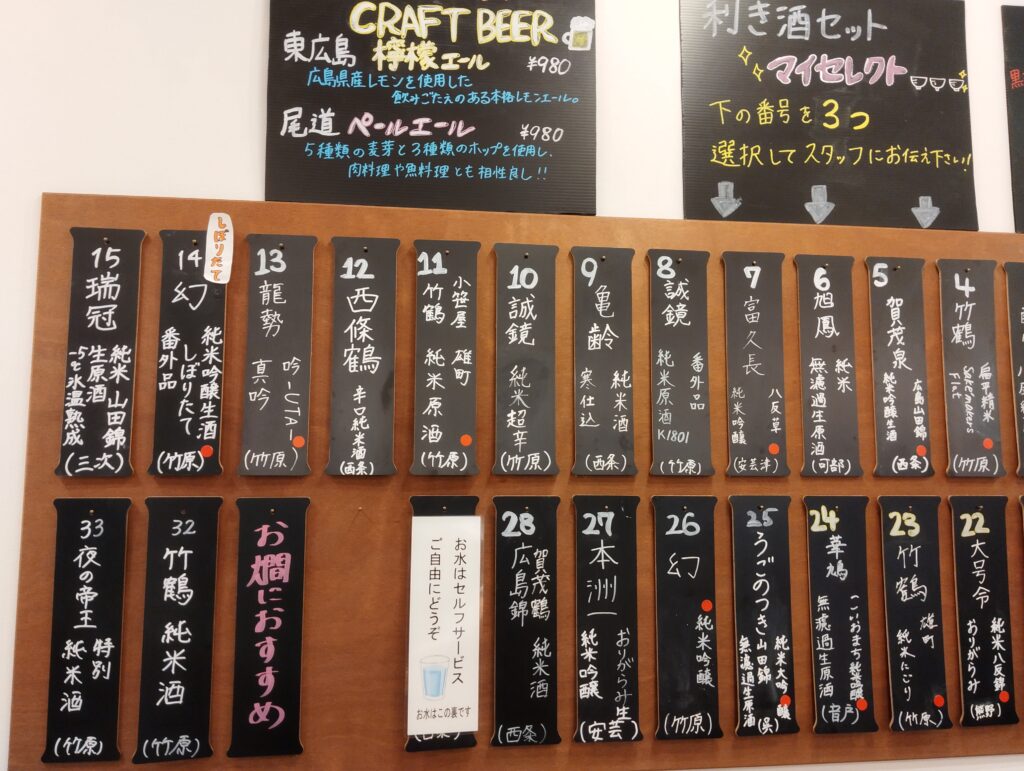 CRAFT BEER
東広島 檸檬エール ¥980
広島県産レモンを使用した
飲みごたえのある本格レモンエール。
尾道 ペールエール ¥980
5種類の麦芽と3種類のホップを使用し、
肉料理や魚料理とも相性良し!!
利き酒セット
マイセレクト
下の番号を3つ
選択してスタッフにお伝え下さい!!
4
竹鶴
扁平精米
Sakemakers
Flat
(竹原)
5
賀茂泉
広島山田錦
純米吟醸生酒
(西条)
6
旭鳳
純米
無濾過生原酒
(可部)
7
富久長
八反草
純米吟醸
(安芸津)
8
誠鏡
番外品
純米原酒
K1801
(竹原)
9
亀齢
純米酒
寒仕込
(西条)
10
誠鏡
純米超辛
(竹原)
11
小笹屋
竹鶴
雄町
純米原酒
(竹原)
12
西條鶴
辛口純米酒
(西条)
13
龍勢
吟-UTAI-
真吟
(竹原)
しぼりたて
14
幻
純米吟醸生酒
しぼりたて
番外品
(竹原)
15
瑞冠
純米山田錦
生原酒
-5℃氷温熟成
(三次)
22
大号令
純米八反錦
おりがらみ
(熊野)
23
竹鶴
雄町
純米にごり
(竹原)
24
華鳩
こいおまち純米吟醸
無濾過生原酒
(音戸)
25
うごのつき
純米大吟醸
山田錦
無濾過生原酒
(呉)
26
幻
純米吟醸
(竹原)
27
本洲一
おりがらみ生
純米吟醸
(安芸)
28
賀茂鶴
広島錦
純米酒
(西条)
お水はセルフサービス
ご自由にどうぞ
お水はこの裏です
お燗におすすめ
32
竹鶴
純米酒
(竹原)
33
夜の帝王
特別
純米酒
(竹原)